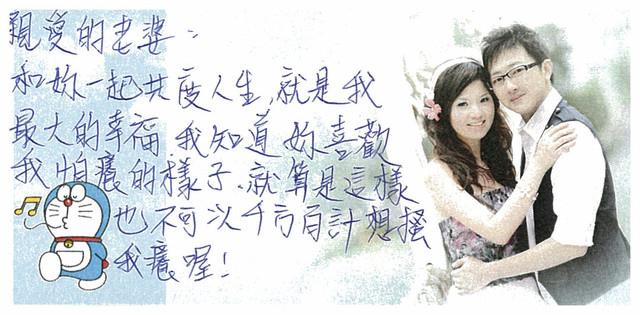 親愛的老婆：
和妳一起共度人生,就是我
最大的幸福 我知道妳喜歡
我怕癢的樣子.就算是這樣
也不可以千方百計想搔
我癢喔！